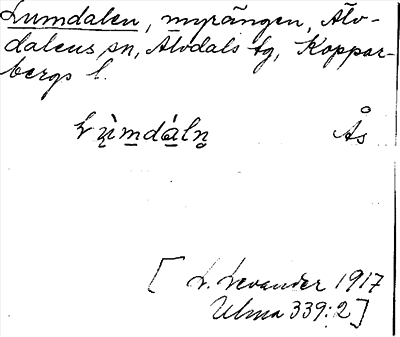 Lumdalen, myrängen, Älv-
dalens sn, Älvdals tg, Koppar-
bergs l.
Lu̗̱m̱dá̱ln̥ Ås
[L. Levander 1917
Ulma 339:2]